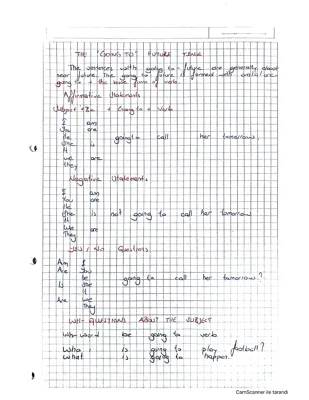 THE "GOING TO" FUTURE TENSE
The sentences with going to-future are generally about
near future. The going to future is formed with am/is/are
going to + the base form of verb.
Affirmative Statements
Subject + Be + Going to + Verb
I am
You are
He
She is going to call her tomorrow.
It
We are
They
Negative Statements
I am
You are
He
She is not going to call her tomorrow
It
We are
They
Yes / No Questions
Am I
Are You
He
Is She going to call her tomorrow?
It
Are We
They
WH- QUESTIONS ABOUT THE SUBJECT
Wh- word be going to verb
Who is going to play football?
What is going to happen?
CamScanner ile tarandı